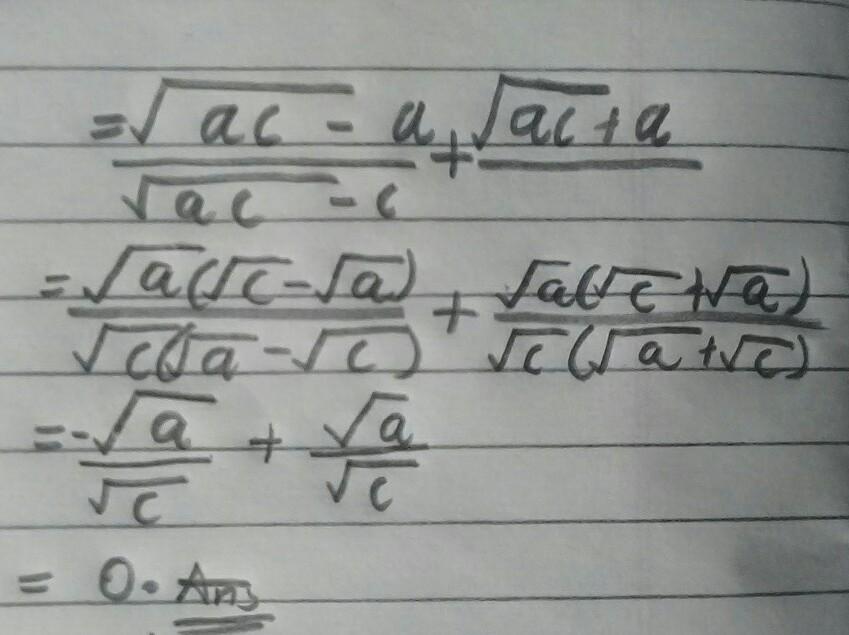 = (√ac - a)/(√ac - c) + (√ac + a)/
= √a(√c - √a)/√c(√a - √c) + √a(√c + √a)/√c(√a + √c)
= -√a/√c + √a/√c
= 0. Ans